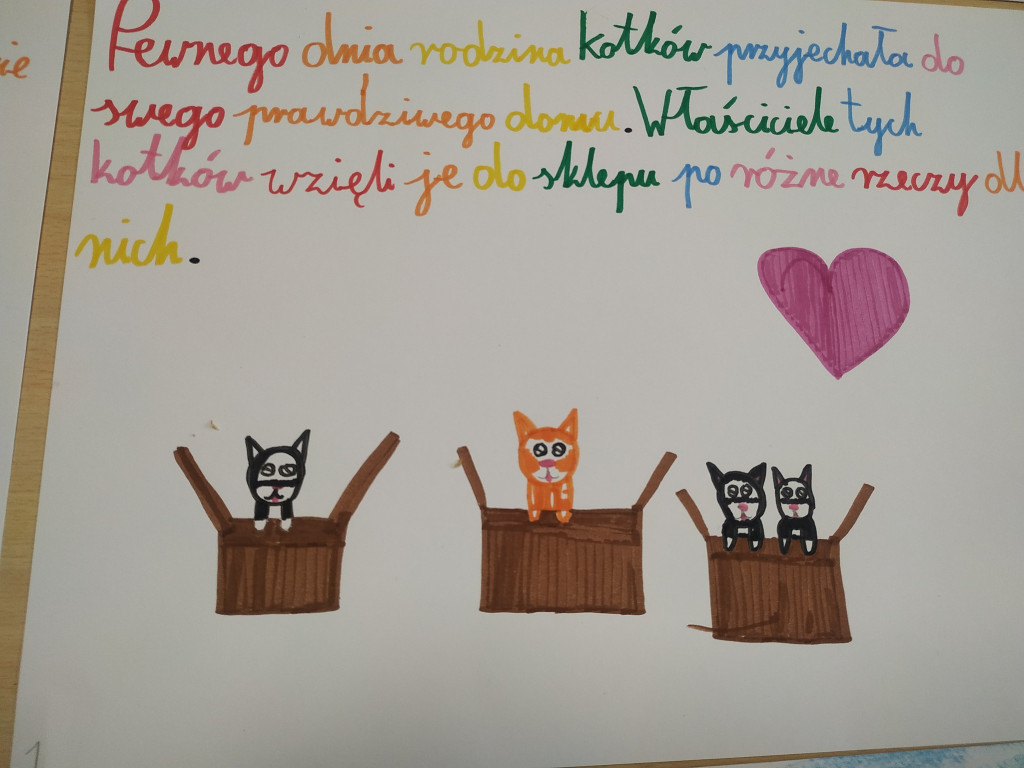 Pewnego dnia rodzina kotków przyjechała do
swego prawdziwego domu. Właściciele tych
kotków wzięli je do sklepu po różne rzeczy
nich.
1